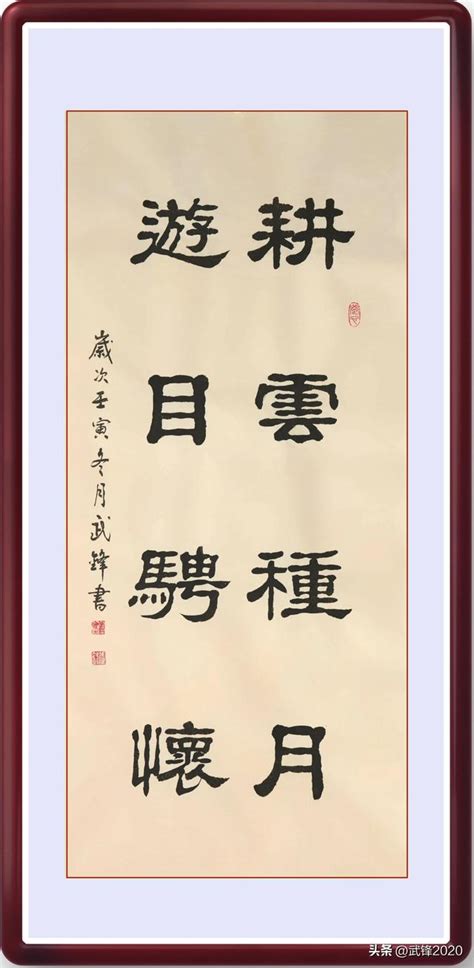 耕雲種月
遊目騁懷
歲次壬寅冬月武鋒書
头条 @武锋2020